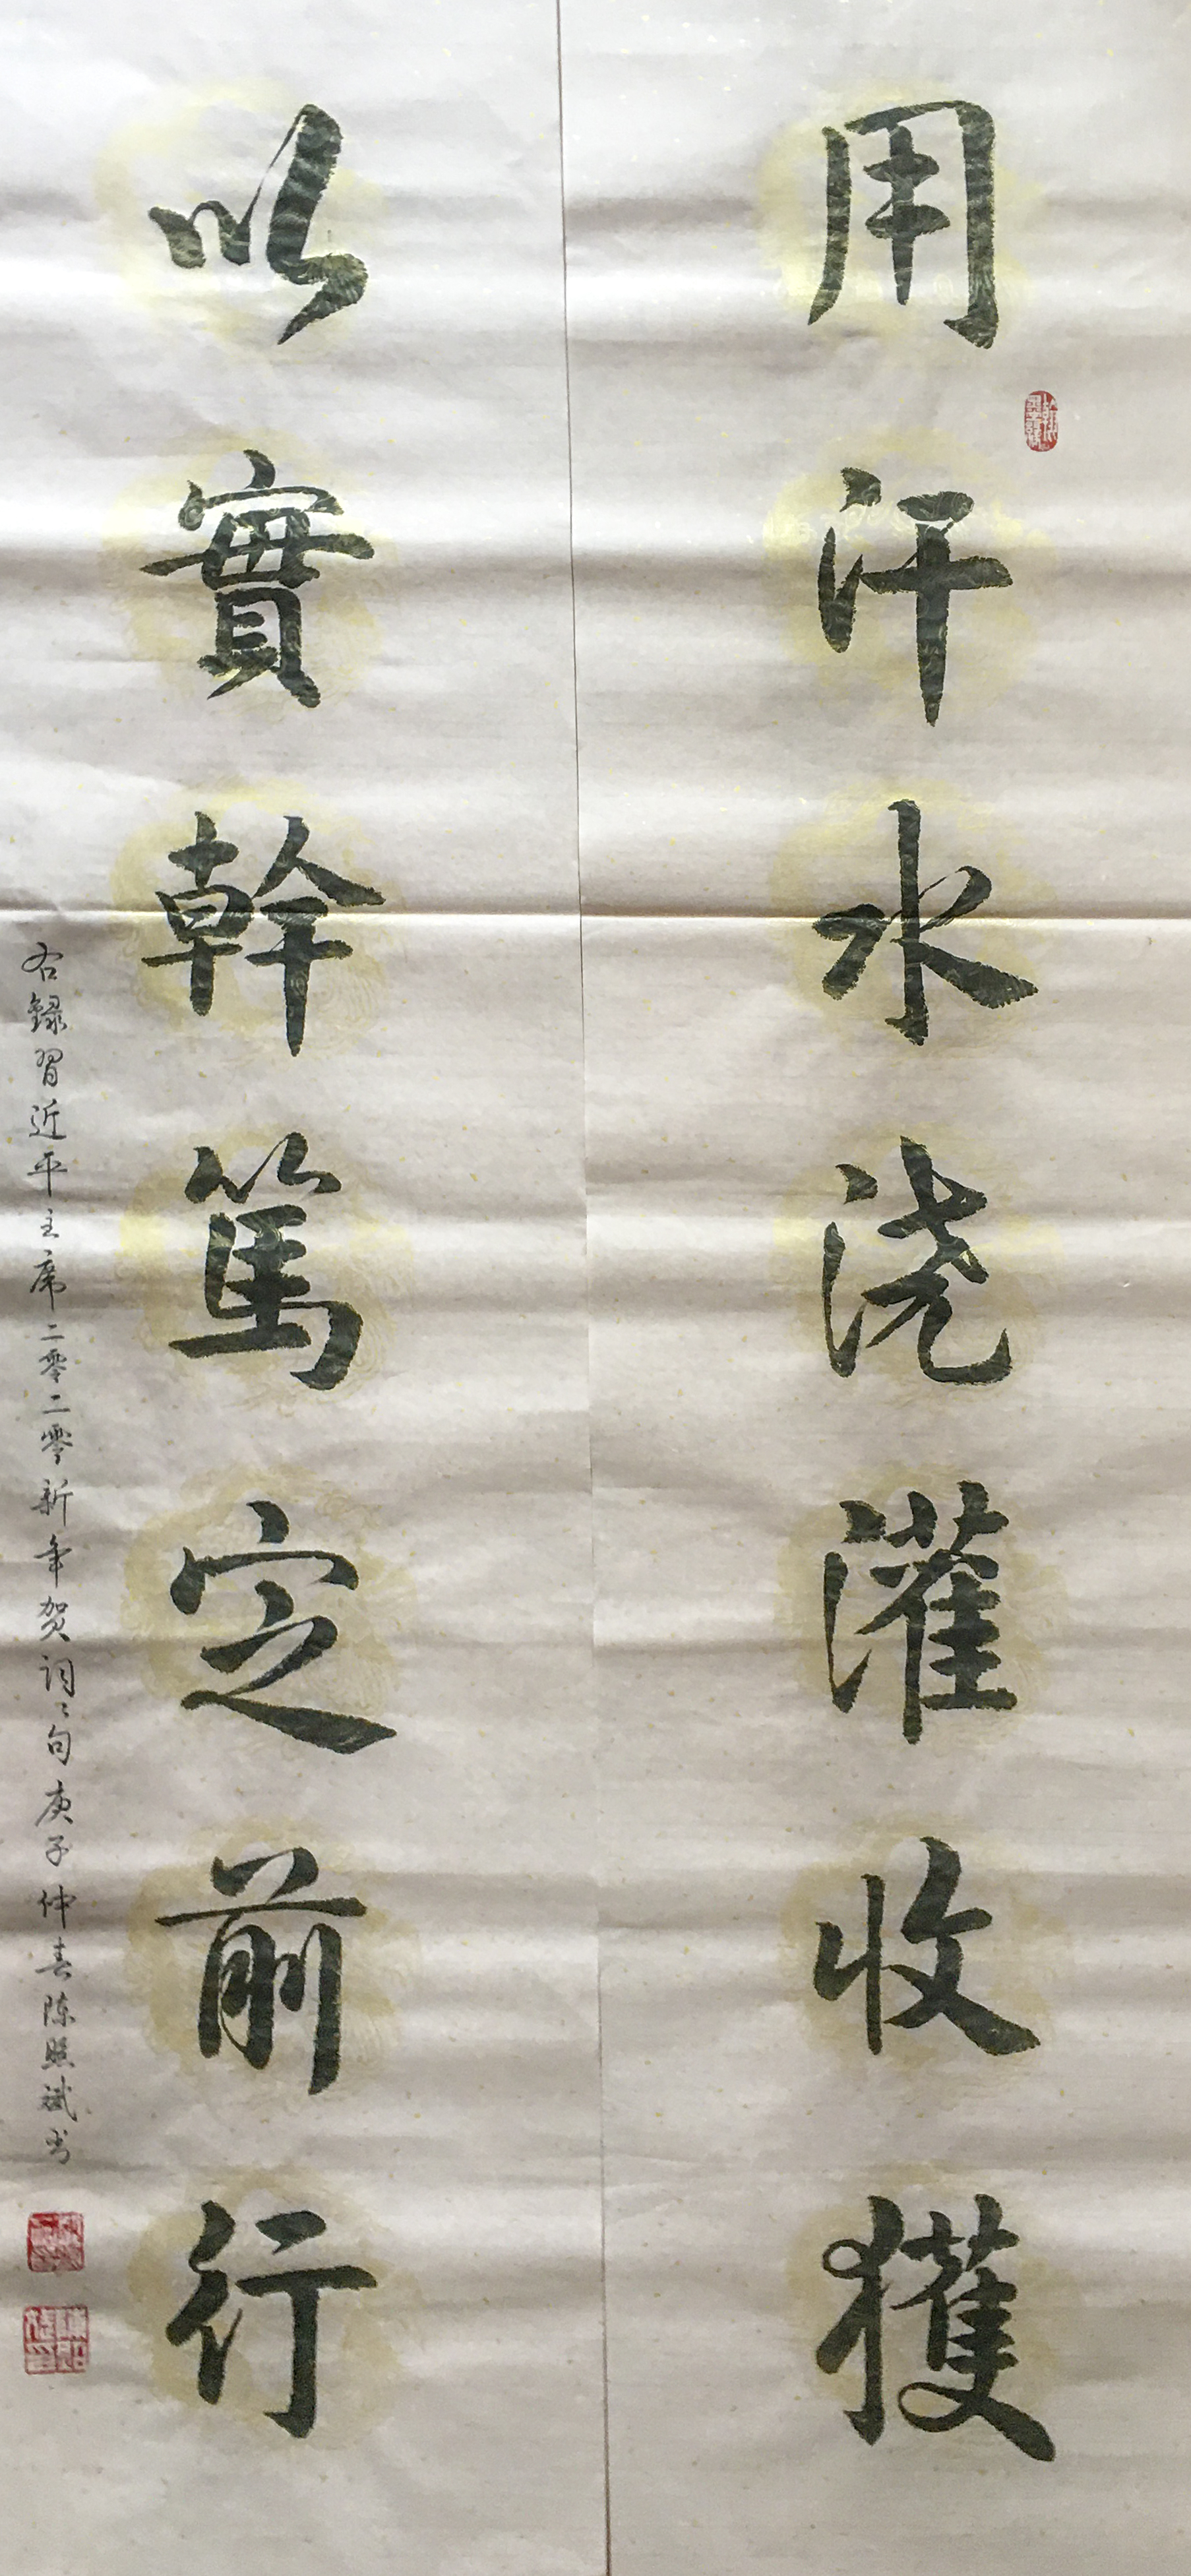 用汗水浇灌收獲
以實幹篤定前行
右録習近平主席二零二零新年贺词之句庚子仲春陈照斌书